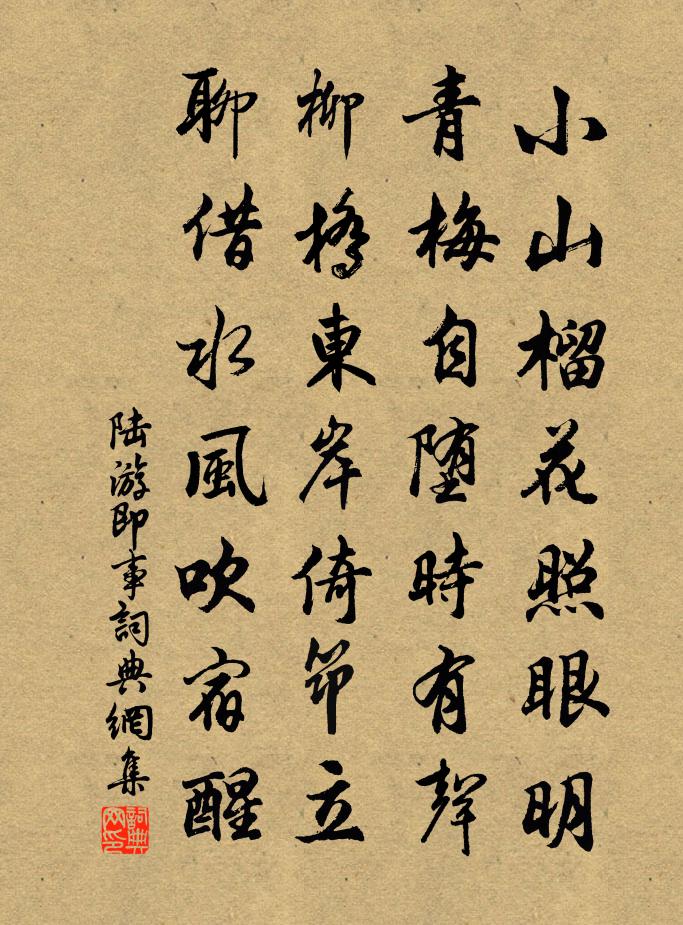 小山榴花照眼明
青梅自堕時有聲
柳橋東岸倚笻立
聊借水風吹宿醒
陆游即事詞典網集
詞典网印